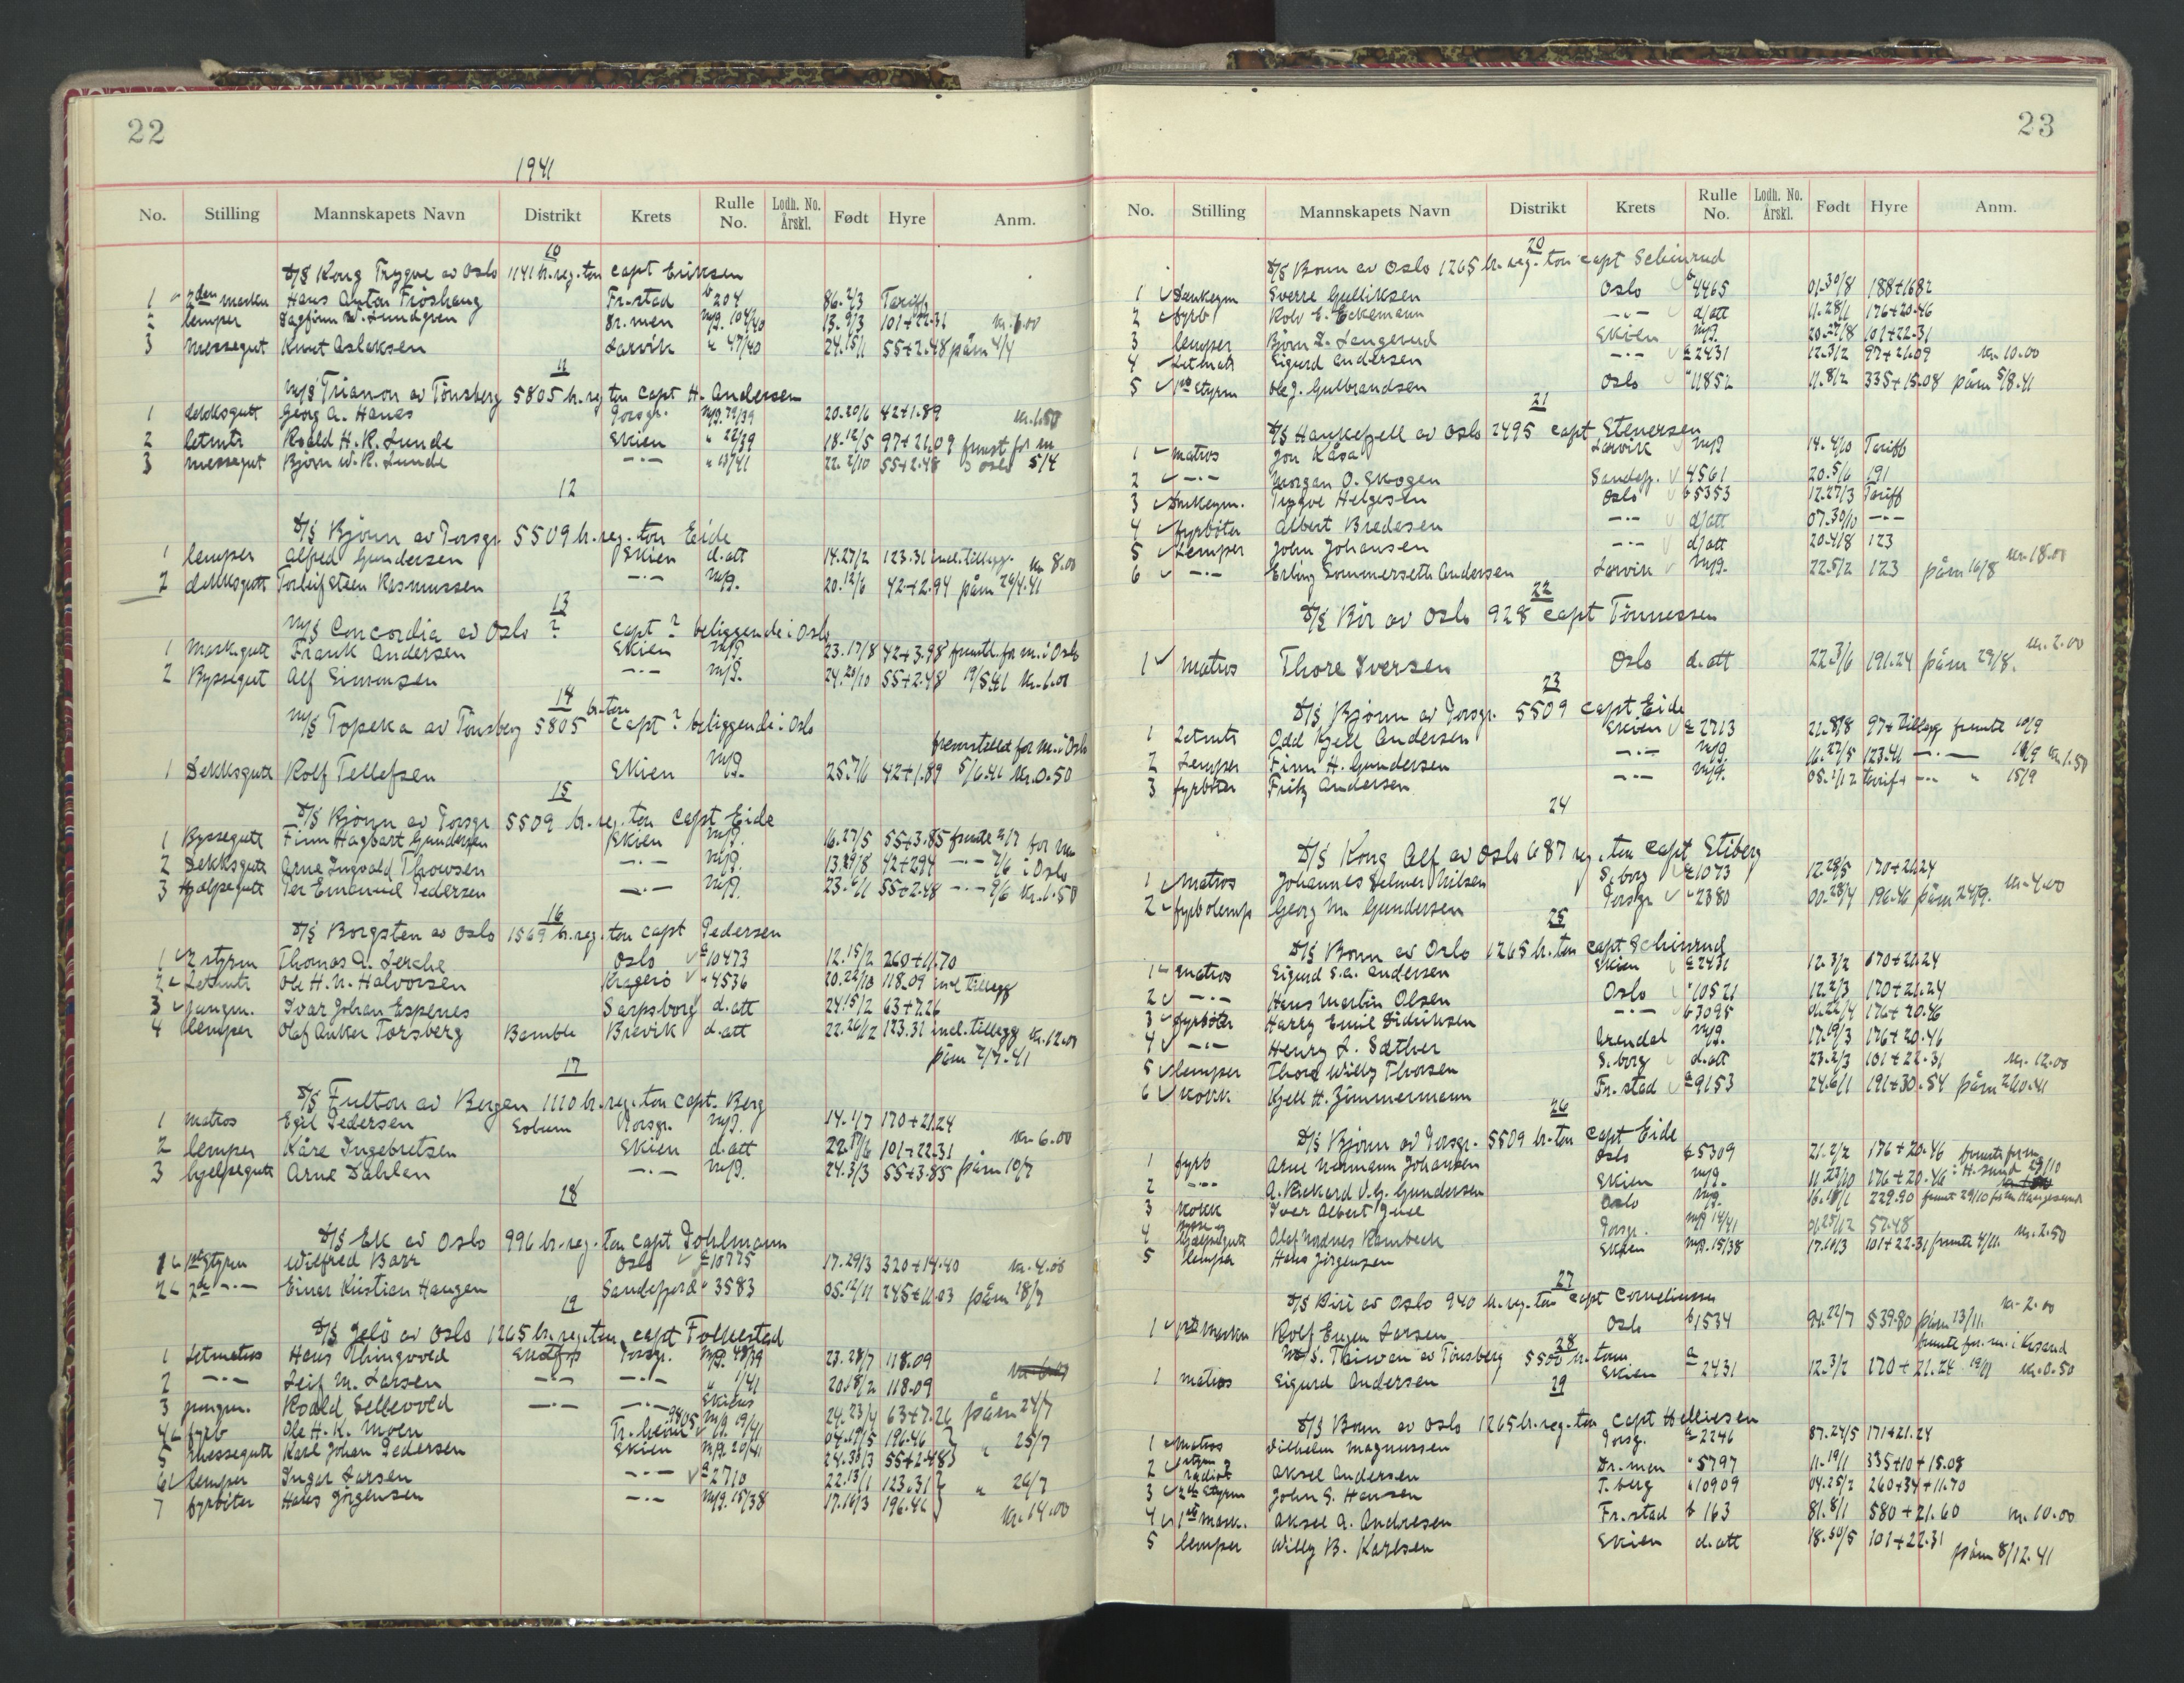 22
1941
No. Stilling Mannskapets Navn Distrikt Krets Rulle No. Lodh. No. Årskl. Født Hyre Anm.
10
D/S Kong Trygve av Oslo 1141 br.reg.ton capt Eriksen
1 2den maskn Hans Anton Fröshaug Fr.stad b 204 86.2/3 Tariff
2 lemper Dagfinn W. Lundgren Dr.men n/p. 104/40 13.9/3 101+22.31 kr. 6.00
3 messegut Knut Aslaksen Larvik " 47/40 24.15/1 55+2.48 påm 4/4
11
M/S Trianon av Tönsberg 5805 b.reg ton capt H. Andersen
1 dekksgutt Georg A. Hanes Porsgr. n/p. 79/39 20.20/6 42+1.89 kr. 1.50
2 letmtr Roald H.R. Lunde Skien " 22/39 18.12/5 97+21.09 fremst for m
3 messegut Björn W.R. Lunde -"- " 13/41 22.2/10 55+2.48 i Oslo 5/4
12
D/S Björnn av Porsgr. 5509 br.reg.ton Eide
1 lemper Alfred Gundersen Skien d.att 14.27/2 123.31 incl.tillegg. kr 8.00
2 dekksgutt Torleif Steen Rasmussen -"- n/p. 20.12/6 42+2.94 påm 24/4.41
13
M/S Concordia av Oslo ? capt ? beliggende i Oslo
1 Mask.gutt Frank Andersen Skien n/p. 23.17/8 42+3.98 fremst. for m. i Oslo
2 Byssegut Alf Simonsen -"- n/p. 24.20/10 55+2.48 19/5.41 kr. 6.00
14
M/S Topeka av Tönsberg 5805 br.ton capt ? beliggende i Oslo
fremstilled for m. i Oslo
1 Dekksgutt Rolf Tellefsen Skien n/p. 25.7/6 42+1.89 5/6.41 kr. 0.50
15
D/S Björnn av Porsgr 5509 br.reg.ton capt Eide
1 Byssegutt Finn Hagbart Gundersen Skien n/p. 16.27/5 55+3.85 fremte 2/7 for m
2 Dekksgutt Arne Ingvald Thowsen -"- n/p. 13.29/8 42+2.94 -"- 7/6 i Oslo
3 Hjælpegutt Per Emanuel Pedersen -"- n/p. 23.6/11 55+2.48 -"- 9/6 kr. 1.50
16
D/S Borgsten av Oslo 1569 br.reg.ton capt Pedersen
1 2 styrm Thomas A. Lerche Oslo a 10473 12.15/2 260+11.70
2 Letmtr Ole H.N. Halvorsen Kragerö " 4536 20.22/10 118.09 incl tillegg
3 jungm. Ivar Johan Espenes Sarpsborg d.att 24.15/2 63+7.26
4 lemper Olaf Anker Torsberg Bamble Brevik d.att 22.26/12 123.31 incl. tillegg kr. 12.00
påm 2/7.41
17
D/S Fulton av Bergen 1110 br.reg.ton capt. Berg
1 matros Egil Pedersen Solum Porsgr. n/p. 14.1/7 170+21.24
2 lemper Kåre Ingebretsen Skien d.att 22.17/6 101+22.31 kr. 6.00
3 hjelpegutt Arne Dahlen -"- n/p. 24.3/3 55+3.85 påm 10/7
18
D/S Ek av Oslo 996 br.reg.ton capt Dohlmann
1 1ste styrm Wilfred Barr Oslo a 10775 17.29/3 320+14.40 kr. 4.00
2 2de -"- Einar Kristian Haugen Sandefjord " 3583 05.12/11 245+11.03 påm 18/7
19
D/S Jelö av Oslo 1265 br.reg.ton capt Folkestad
1 Letmatros Hans Thingvold Porsgr. n/p. 48/39 23.28/7 118.09
2 -"- Leif M. Larsen -"- -"- " 1/41 20.18/2 118.09
3 jungm. Roald Sellevold -"- -"- 24.23/4 63+7.26 påm 24/7
4 fyrb Ole H.K. Moen Tr.heim 9805 04.19/5 196.46
5 messegutt Karl Johan Pedersen Skien n/p. 20/41 24.30/3 55+2.48 " 25/7
6 lemper Ingar Larsen -"- a 2710 22.13/1 123.31 " 26/7
7 fyrböter Hans Jörgensen -"- n/p. 15/38 17.16/3 196.46 kr. 14.00
23
No. Stilling Mannskapets Navn Distrikt Krets Rulle No. Lodh. No. Årskl. Født Hyre Anm.
20
D/S Bonn av Oslo 1265 br.reg.ton capt Schinrud
1 Donkeym Sverre Gulliksen Oslo b 4465 01.30/8 188+16.82
2 fyrb Rolv E. Eckemann -"- d/att 11.28/1 176+20.46
3 lemper Björn L. Langerud Skien n/p. 20.27/8 101+22.31
4 Letmatr Sigurd Andersen -"- a 2431 12.3/2 97+21.09 kr. 10.00
5 1ste styrm Ole J. Gulbrandsen Oslo " 11852 11.8/2 335+15.08 påm 5/8.41
21
D/S Haukefjell av Oslo 2495 capt Stenersen
1 matros Jon Kåsa Larvik n/p 14.4/10 Tariff
2 -"- Morgan O. Skogen Sandefj. 4561 20.5/6 191
3 Donkeym. Trygve Helgesen Oslo b 5353 12.27/3 Tariff
4 fyrböter Albert Bredesen -"- d/att 07.30/10 -"-
5 Lemper John Johansen -"- d/att 20.4/8 123
6 -"- Erling Sommerseth Andersen Larvik n/p. 22.5/2 123 påm 16/8 kr. 18.00
22
D/S Bör av Oslo 928 capt Tönnessen
1 matros Thore Iversen Oslo d.att 22.3/6 191.24 påm 29/8. kr. 2.00
23
D/S Björnn av Porsgr. 5509 capt Eide
1 Letmtr Odd Kjell Andersen Skien a 2713 21.8/8 97+tillegg fremte 10/9
2 Lemper Finn H. Gundersen -"- n/p. 16.27/5 123.41 -"- kr. 1.50
3 fyrböter Fritz Andersen -"- n/p. 05.1/12 tarif+ -"- " 15/9
24
D/S Kong Alf av Oslo 687 reg.ton capt Stiberg
1 matros Johannes Selmer Nilsen S.borg a 1073 12.29/5 170+21.24
2 fyrb olemp Georg M. Gundersen Porsgr " 2380 00.28/4 196.46 påm 24/9. kr. 4.00
25
D/S Bonn av Oslo 1265 br.ton capt Schinrud
1 matros Sigurd S.A. Andersen Skien a 2431 12.3/2 170+21.24
2 -"- Hans Martin Olsen Oslo " 10521 12.2/3 170+21.24
3 fyrböter Harry Emil Didriksen -"- b 3095 06.22/4 176+20.46
4 -"- Henry L. Sæther Arendal n/p. 17.19/3 176+20.46
5 lemper Thore Willy Thorsen S.borg d.att 23.2/3 101+22.31 kr. 12.00
6 kokk Kjell H. Zimmermann Fr.stad a 9153 24.6/1 191+30.54 påm 2/10.41
26
D/S Björnn av Porsgr. 5509 br.ton capt Eide
1 fyrb Arne Normann Johansen Oslo b 5309 21.2/2 176+20.46 fremte for m
2 -"- A. Rickard V.G. Gundersen Skien n/p. 11.23/10 176+20.46 i H.sund 29/10
3 kokk Iver Albert Juel Oslo n/p. 16.18/1 229.90 fremt 29/10 for m Haugesund
4 bysse og hjælpegutt Olaf Nordnes Rambeck Porsgr. n/p 14/41 01.25/12 57.48 kr. 2.50
5 lemper Hans Jörgensen Skien n/p. 15/38 17.16/3 101+22.31 fremte 4/11.
27
D/S Biri av Oslo 940 br.reg.ton capt Corneliussen
1 1ste maskn Rolf Eugen Larsen Oslo b 1534 94.22/7 539.80 påm 13/11. kr. 2.00
28
M/S. Taiwan av Tönsberg 5500 br.tonn fremte for m. i Krsand
1 matros Sigurd Andersen Skien a 2431 12.3/2 170+21.24 19/11 kr. 0.50
29
D/S Bonn av Oslo 1265 br.reg.ton capt Helliesen
1 Matros Vilhelm Magnussen Porsg. a 2246 87.24/5 171+21.24
2 styrm radiot Aksel Andersen Dr.men " 5797 11.19/1 335+10+15.08
3 2de Styrm John S. Hansen T.berg " 10909 04.25/2 260+34+11.70
4 1ste mask. Aksel A. Andresen Fr.stad b 163 81.8/1 580+21.60 kr. 10.00
5 lemper Willy B. Karlsen Skien d.att 18.30/5 101+22.31 påm 8/12.41